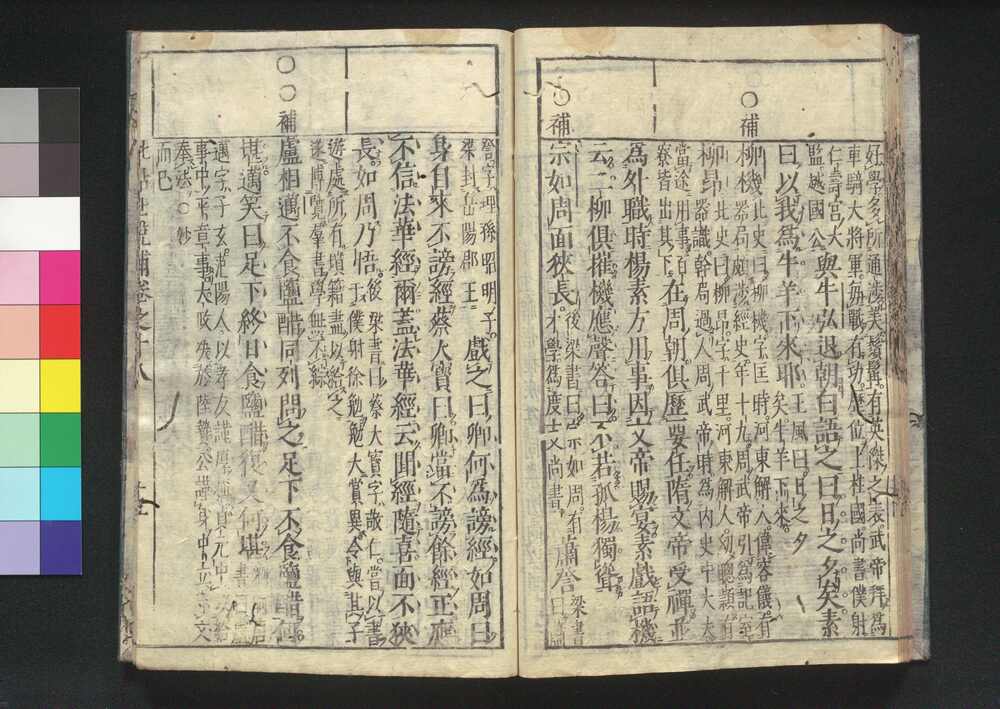 好學多所通涉美鬚髯有英傑之表武帝拜爲
車騎大將軍每戰有功歷位上柱國尚書僕射
仁壽宮大
監越國公與牛弘退朝白語之曰日之夕矣素
曰以我爲牛羊下來耶王風曰日之夕
矣牛羊下來
○補
柳機北史曰柳機字匡時河東解人偉容儀有
器局頗涉經史年十九周武帝引爲記室
柳昂北史曰柳昂字千里河東解人幼聰穎有
器識幹局過人周武帝時爲内史中大夫
當途用事百
寮皆出其下在周朝俱歷要任隋文帝受禪並
爲外職時楊素方用事因文帝賜宴素戲語機
云二柳俱摧機應聲答曰不若孤楊獨聳
○補
宗如周面狹長後梁書曰宗如周有
才學爲度支尚書蕭詧梁書
曰蕭
詧字理孫昭明子
梁封岳陽郡王戲之曰卿何爲謗經如周曰
身自來不謗經蔡大寶曰卿當不謗餘經正應
不信法華經爾蓋法華經云聞經隨喜面不狹
長如周乃悟後梁書曰蔡大寶字敬仁嘗以書
干僕射徐勉勉大賞異令與其子
遊處所有墳籍盡以給之
遂博覽羣書學無不綜
○○補
盧相邁不食鹽醋同列問之足下不食鹽醋何
堪邁笑曰足下終日食鹽醋復又何堪
邁字子玄范陽人以孝友謹厚稱貞元中
事中平章事大政决於陸贄公謹身中立守文
奉法○鈔
而已
世説補卷之十八